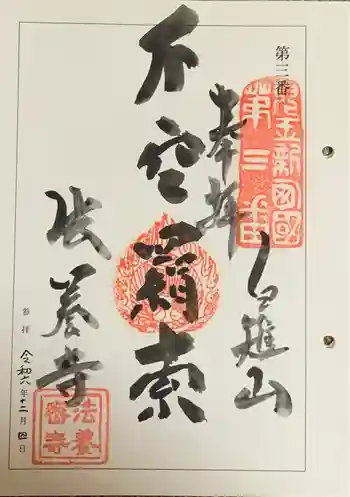 第三番
奉拝
白雉山
不空羂索
法養寺
参拝
令和六年十二月四日
第三番
法養密寺